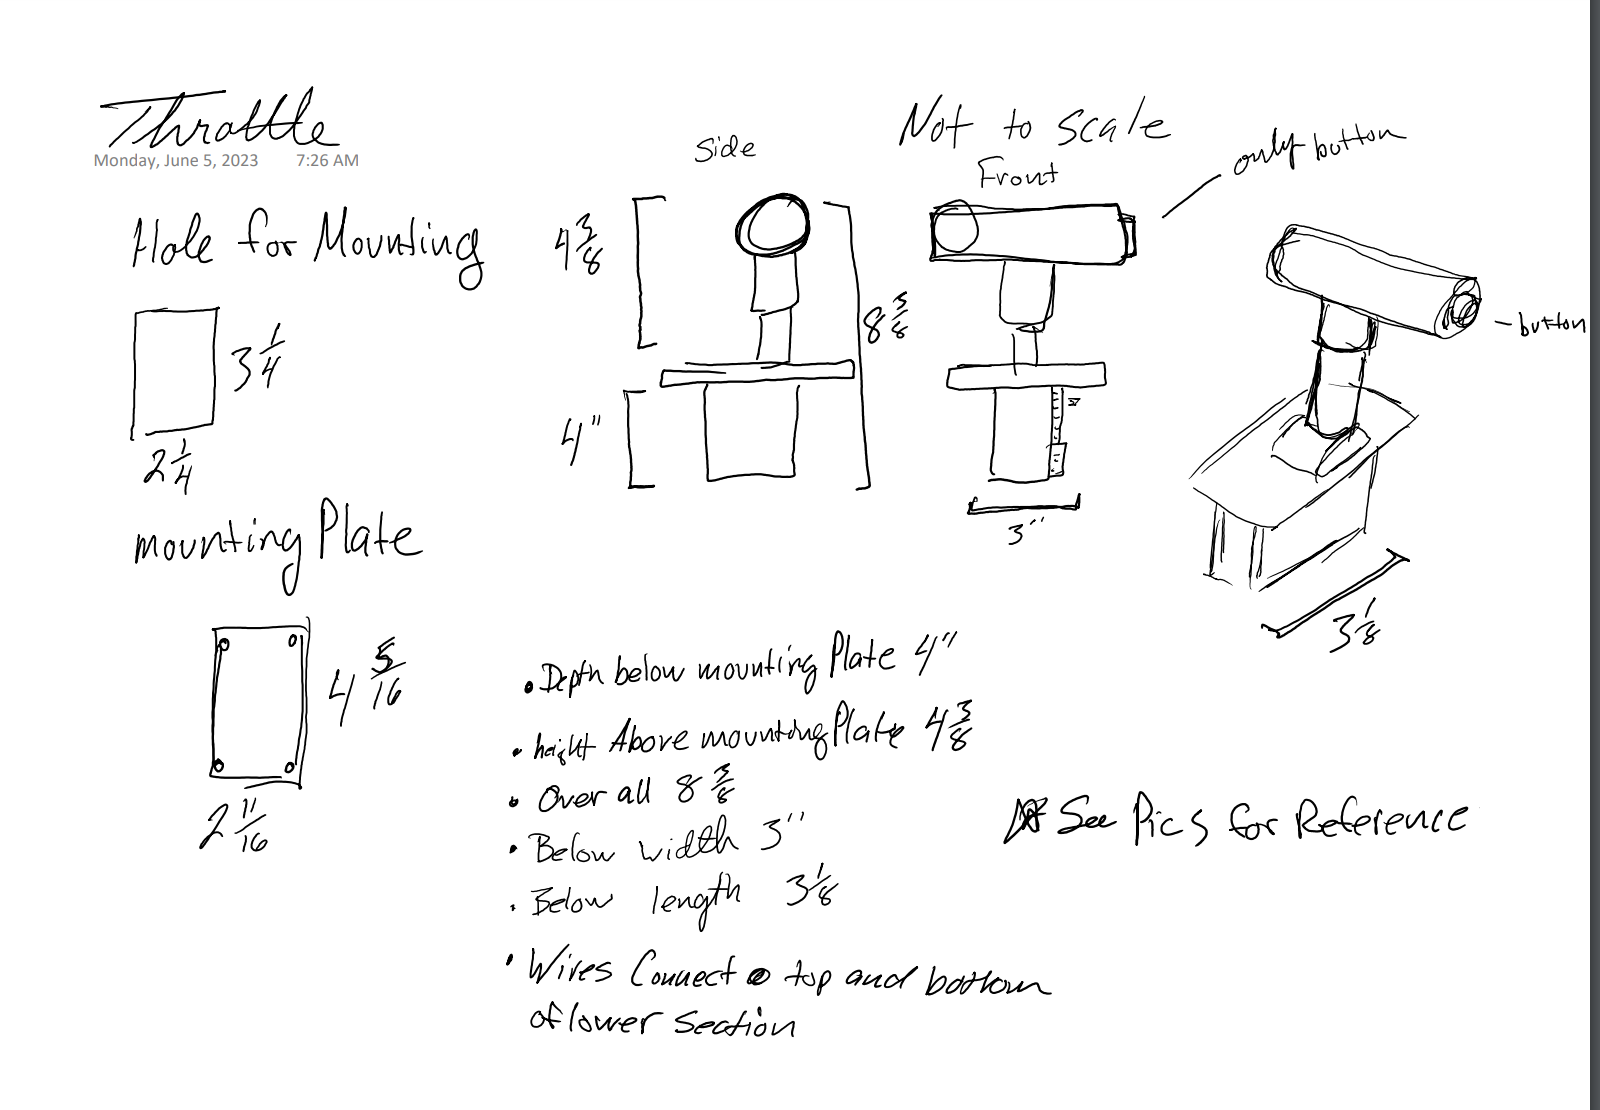 Throttle
Monday, June 5, 2023 7:26 AM
Not to scale
Side
Front
only button
Hole for Mounting
4 3/8
8 3/8
3 1/4
2 1/4
4"
3"
button
3 1/8
mounting Plate
4 5/16
2 11/16
• Depth below mounting Plate 4"
• height Above mounting Plate 4 3/8
• Over all 8 3/8
• Below width 3"
• Below length 3 1/8
• Wires Connect @ top and bottom
of lower Section
See Pics for Reference